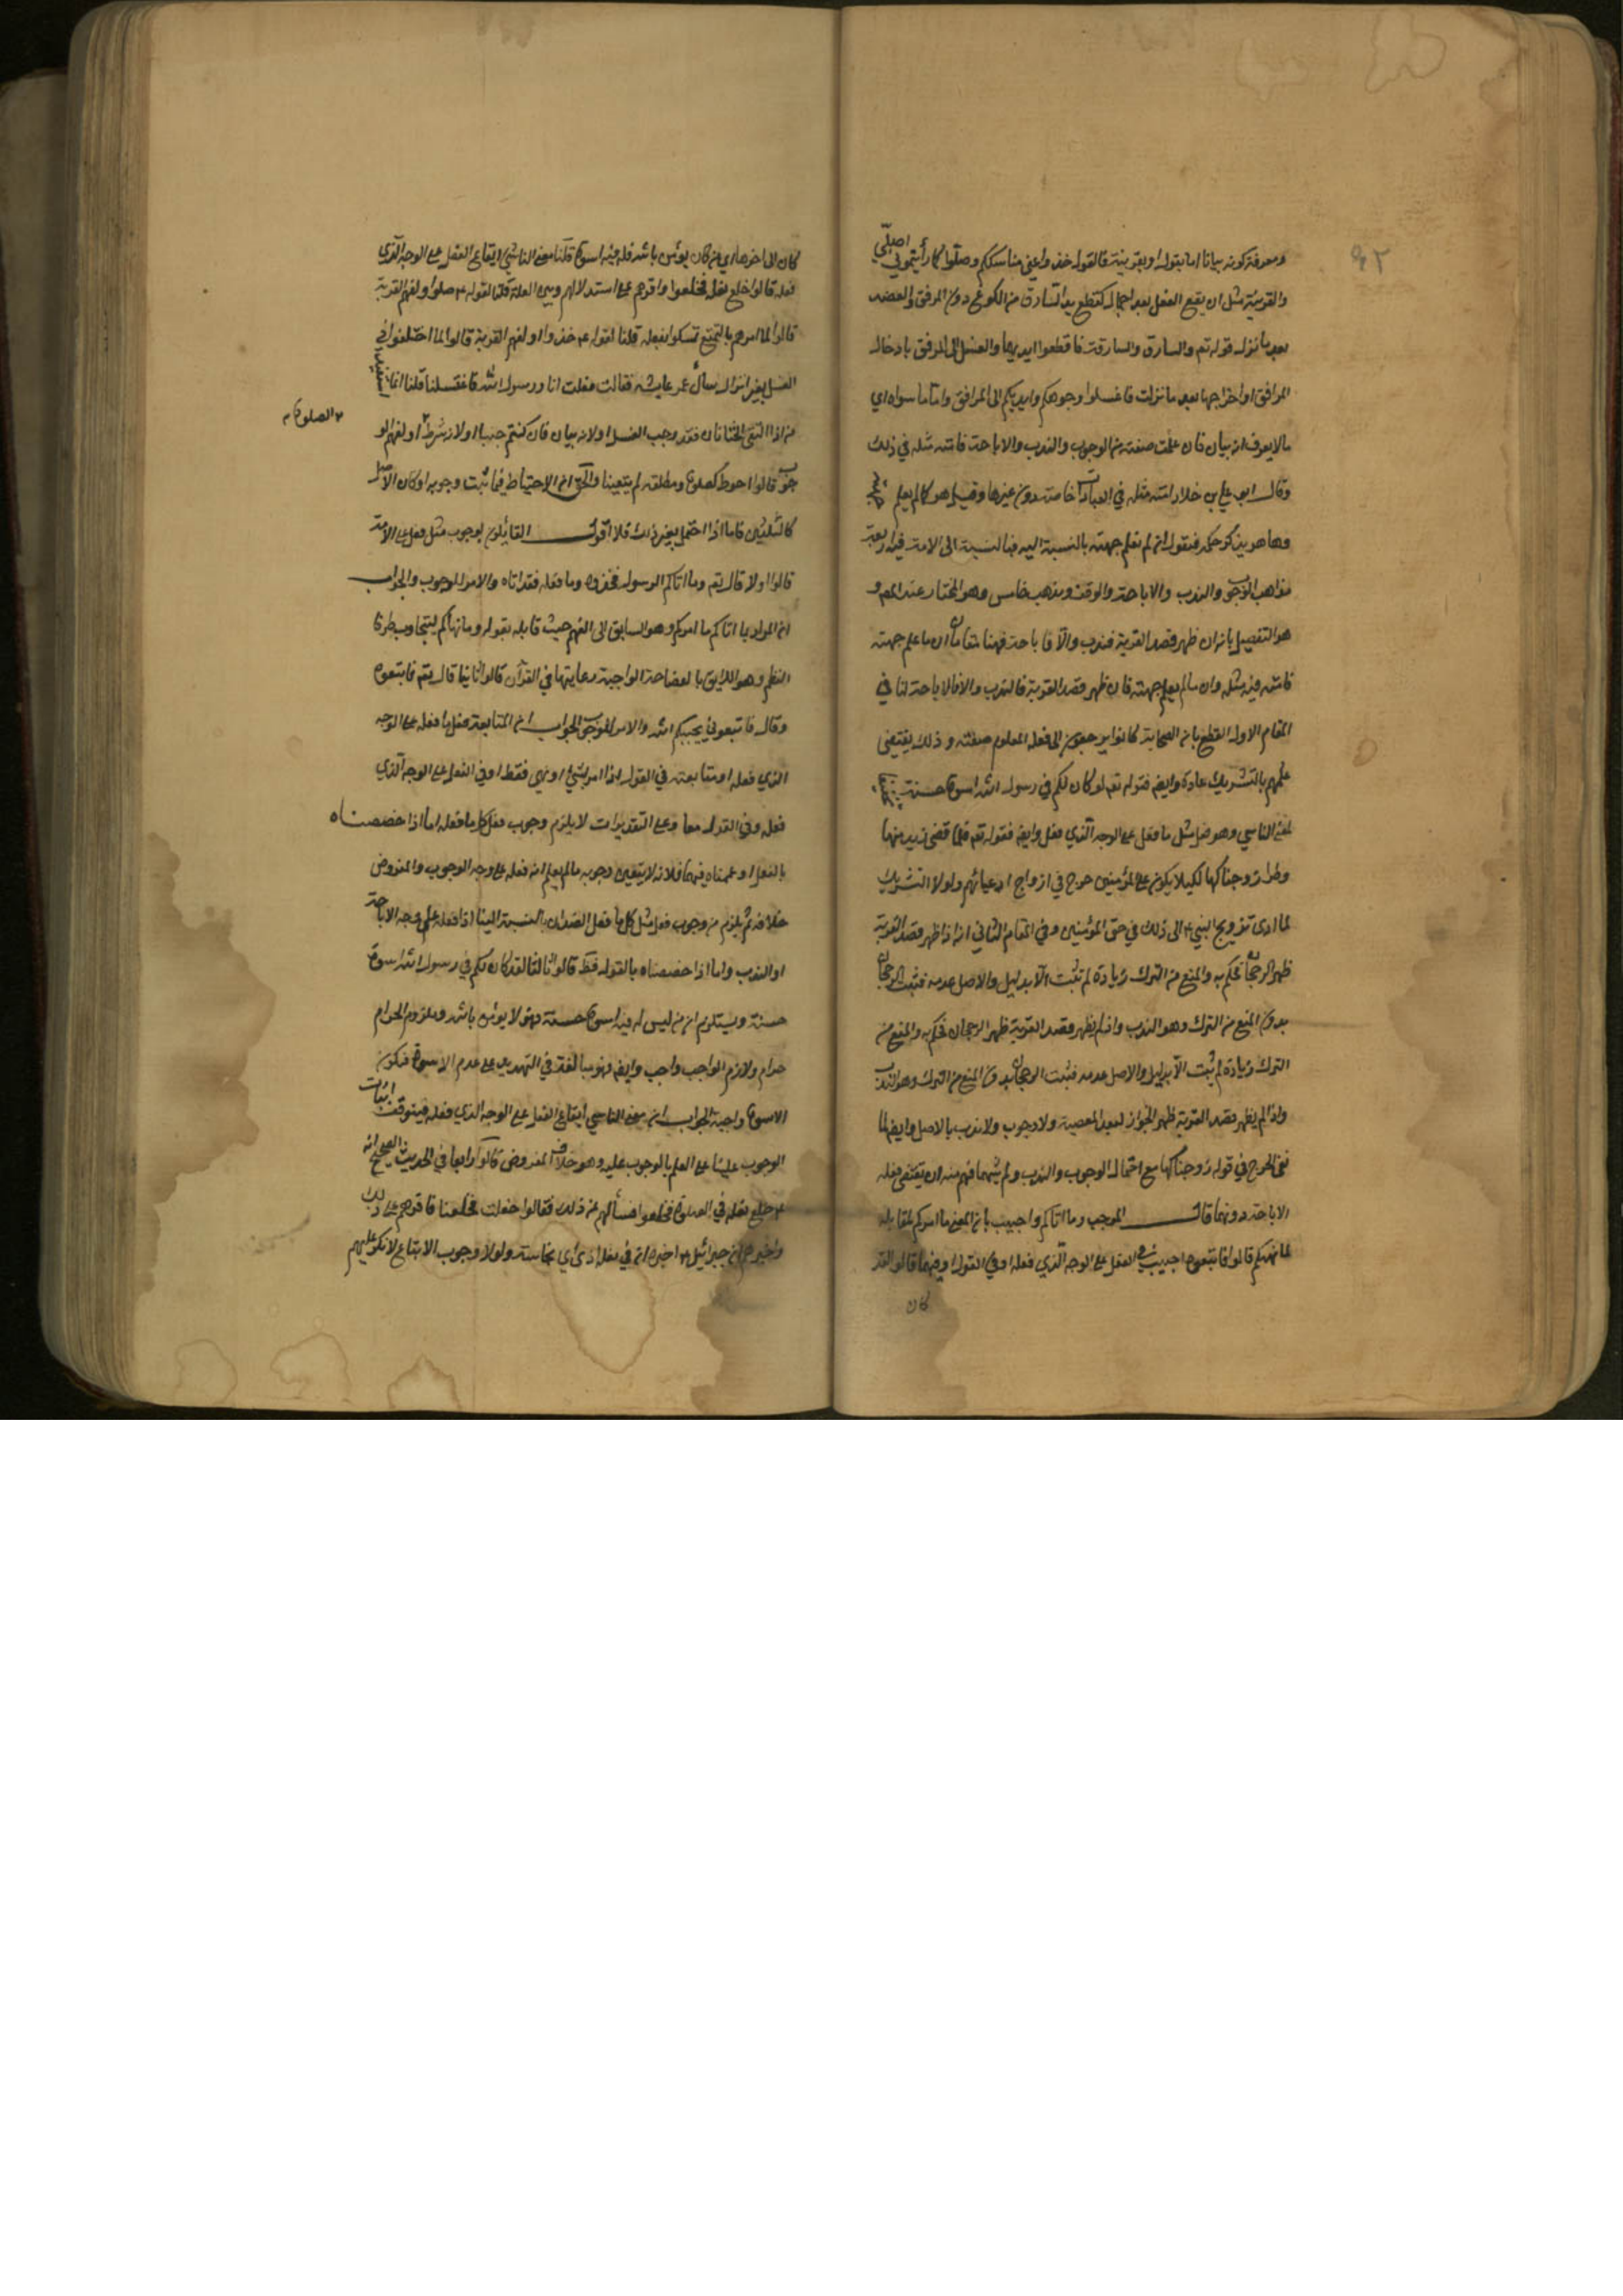 ٩٢
ومعرفة كونه بيانا اما بقول او بقرينة فالقول خذوا عني مناسككم وصلّوا كما رأيتموني اصلّي
والقرينة مثل ان يقع الفعل بعد اجمال كقطع يد السارق من الكوع دون المرفق والعضد
بعد ما نزل قوله تع والسارق والسارقة فاقطعوا ايديهما والغسل الى المرفق بادخال
المرافق او اخراجها بعد ما نزلت فاغسلوا وجوهكم وايديكم الى المرافق واما ما سواه اي
ما لا يعرف انه بيان فان علمت صفته من الوجوب والندب والاباحة فامته مثله في ذلك
وقال ابو علي بن خلاد امته مثله في العبادات خاصة دون غيرها وقيل هو كما لم يعلم
وها هو يذكر حكمه فنقول ان لم نعلم جهته بالنسبة اليه فبالنسبة الى الامة فيه اربعة
مذاهب الوجوب والندب والاباحة والوقف ومذهب خامس وهو المختار عند المص و
هو التفصيل بانه ان ظهر قصد القربة فندب والّا فاباحة فهنا مقامان ان ما علم جهته
فامته فيه مثله وان ما لم يعلم جهته فان ظهر قصد القربة فالندب والا فالاباحة لنا في
المقام الاول القطع بان الصحابة كانوا يرجعون الى فعله المعلوم صفته وذلك يقتضي
علمهم بالتشريك عادة وايضا فقوله تع لقد كان لكم في رسول الله اسوة حسنة
لمعنى التاسي وهو فعل مثل ما فعل على الوجه الذي فعل وايضا فقوله تع فلما قضى زيد منها
وطرا زوجناكها لكيلا يكون على المؤمنين حرج في ازواج ادعيائهم ولولا التشريك
لما ادى تزويج النبي الى ذلك في حق المؤمنين وفي المقام الثاني انه اذا ظهر قصد القربة
ظهر الرجحان فحكم به والمنع من الترك زيادة لم تثبت الّا بدليل والاصل عدمه فثبت الرجحان
بدون المنع من الترك وهو الندب واذا لم يظهر قصد القربة ظهر الرجحان فحكم به والمنع من
الترك زيادة لم تثبت الّا بدليل والاصل عدمه فيثبت الرجحان بدون المنع من الترك وهو الندب
واذا لم يظهر قصد القربة ظهر الجواز لبعد المعصية ولا وجوب ولا ندب بالاصل وايضا لما
نفى الحرج في قوله زوجناكها مع احتمال الوجوب والندب ولم يثبتهما فهم منه ان يقتضي فعله
الاباحة دونهما قال الموجب وما اتاكم واجيب بان المعنى ما امركم لمقابلة
لما نهيكم قالوا فاتبعوه اجيب في الفعل على الوجه الذي فعله او في القول او فيهما قالوا لقد
كان
كان الى اخرها اي من كان يؤمن بالله فله فيه اسوة قلنا معنى التاسي ايقاع الفعل على الوجه الذي
فعله قالوا خلع نعله فخلعوا واقرهم على استدلالهم وبين العلة قلنا لقوله صلوا او لفهم القربة
قالوا لما امرهم بالتمتع تمسكوا بفعله قلنا لقوله خذوا او لفهم القربة قالوا لما اختلفوا في
الغسل بغير انزال سأل عمر عايشه فقالت فعلت انا ورسول الله فاغتسلنا قلنا انما
من اذا التقى الختانان فقد وجب الغسل او لانه بيان فان كنتم جنبا او لانه شرط الصلوة او لفهم الو
جوب قالوا احوط كصلوة ومطلقة لم يتعينا والحق ان الاحتياط فيما ثبت وجوبه او كان الاصل
كالثلثين فاما اذا احتمل بغير ذلك فلا اقول القائلون بوجوب مثل فعله على الامة
قالوا اولا قال تع وما اتاكم الرسول فخذوه وما فعله فقد اتاه والامر للوجوب والجواب
ان المراد بما اتاكم ما امركم وهو السابق الى الفهم حيث قابله بقوله وما نهاكم ليتجاوب طرفا
النظم وهو اللايق بالفصاحة الواجبة رعايتها في القرآن قالوا ثانيا قال تع فاتبعوه
وقال فاتبعوني يحببكم الله والامر للوجوب الجواب ان المتابعة فعل ما فعله على الوجه
الذي فعله او متابعته في القول اذا امر بشيء او نهى فقط او في الفعل على الوجه الذي
فعله وفي القول معا وعلى التقديرات لا يلزم وجوب فعل كل ما فعله اما اذا خصصناه
بالفعل او عممناه فيهما فلانه لا يتعين وجوبه ما لم يعلم انه فعله على وجه الوجوب والمفروض
خلافه ثم يلزم من وجوب فعل مثل كل ما فعل الضدان بالنسبة الينا اذا فعله على وجه الاباحة
او الندب واما اذا خصصناه بالقول فقط قالوا ثالثا لقد كان لكم في رسول الله اسوة
حسنة ويستلزم ان من ليس له فيه اسوة حسنة فهو لا يؤمن بالله وملزوم الحرام
حرام ولازم الواجب واجب وايضا فهو مبالغة في التهديد على عدم الاسوة فيكون
الاسوة واجبة الجواب ان معنى التاسي ايقاع الفعل على الوجه الذي فعله فيتوقف اثبات
الوجوب علينا على العلم بالوجوب عليه وهو خلاف المفروض قالوا رابعا في الحديث الصحيح انه
خلع نعله في الصلوة فخلعوا فسألهم عن ذلك فقالوا خلعت فخلعنا فاقرهم على ذلك
واخبرهم ان جبرائيل اخبره ان في نعله اذى اي نجاسة ولولا وجوب الاتباع لانكر عليهم